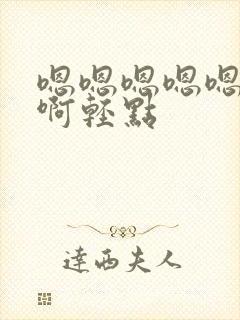 嗯嗯嗯嗯嗯
啊輕點
達西夫人